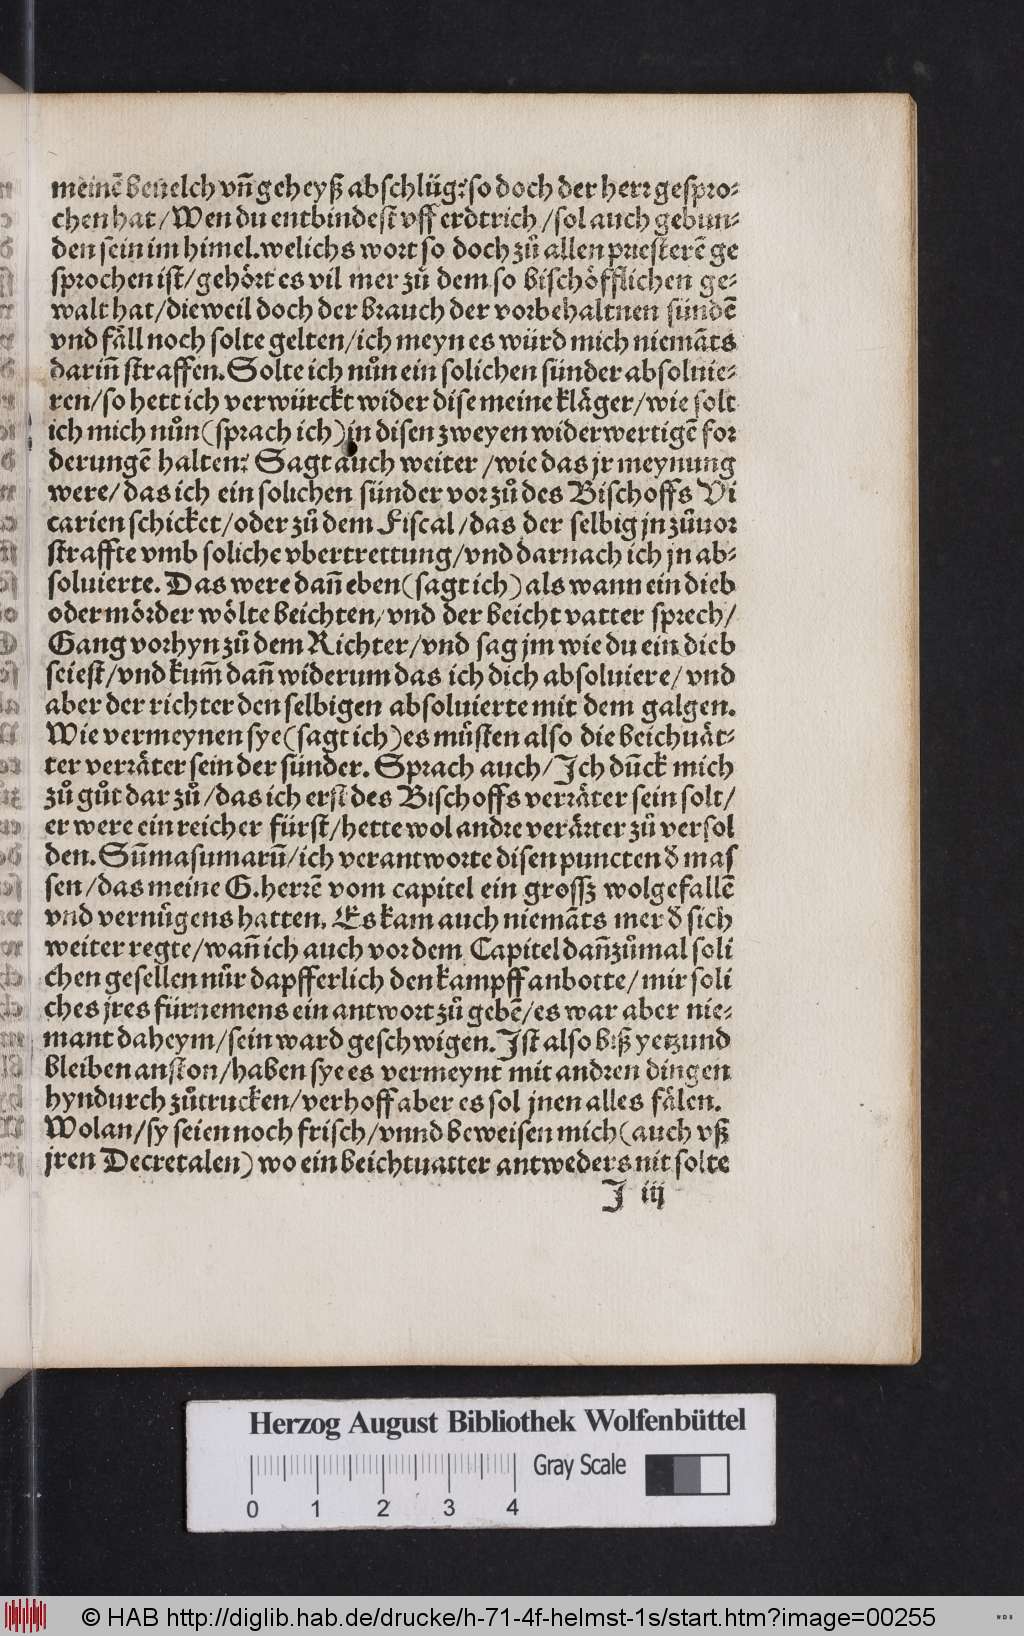 meinē beuelch vñ geheyß abschlüg? so doch der herr gespro⸗
chen hat/Wen du entbindest vff erdtrich/sol auch gebun⸗
den sein im himel.welichs wort so doch zů allen priesterē ge
sprochen ist/gehört es vil mer zů dem so bischöfflichen ge⸗
walt hat/dieweil doch der brauch der vorbehaltnen sündē
vnd fåll noch solte gelten/ich meyn es würd mich niemāts
dariñ straffen.Solte ich nůn ein solichen sünder absoluie⸗
ren/so hett ich verwürckt wider dise meine klåger/wie solt
ich mich nůn(sprach ich)in disen zweyen widerwertigē for
derungē halten? Sagt auch weiter/wie das jr meynung
were/das ich ein solichen sünder vor zů des Bischoffs Vi
carien schicket/oder zů dem Fiscal/das der selbig jn zůuor
straffte vmb soliche vbertrettung/vnd darnach ich jn ab⸗
soluierte. Das were dañ eben(sagt ich)als wann ein dieb
oder mörder wölte beichten/vnd der beicht vatter sprech/
Gang vorhyn zů dem Richter/vnd sag jm wie du ein dieb
seiest/vnd kum̄ dañ widerum das ich dich absoluiere/vnd
aber der richter den selbigen absoluierte mit dem galgen.
Wie vermeynen sye(sagt ich)es müsten also die beichuåt⸗
ter verråter sein der sünder. Sprach auch/Ich dūck mich
zů gůt dar zů/das ich erst des Bischoffs verråter sein solt/
er were ein reicher fürst/hette wol andre verårter zů versol
den. Sūmasumarū/ich verantworte disen puncten d̄ mas
sen/das meine G.herrē vom capitel ein grossz wolgefallē
vnd vernügens hatten. Es kam auch niemāts mer d̄ sich
weiter regte/wañ ich auch vor dem Capitel dañzůmal soli
chen gesellen nůr dapfferlich den kampff anbotte/mir soli
ches jres fürnemens ein antwort zů gebē/es war aber nie⸗
mant daheym/sein ward geschwigen.Ist also biß yetzund
bleiben anston/haben sye es vermeynt mit andren dingen
hyndurch zůtrucken/verhoff aber es sol jnen alles fålen.
Wolan/sy seien noch frisch/vnnd beweisen mich(auch vß
jren Decretalen)wo ein beichtuatter antweders nit solte
J iij
Herzog August Bibliothek Wolfenbüttel
Gray Scale
0 1 2 3 4
© HAB http://diglib.hab.de/drucke/h-71-4f-helmst-1s/start.htm?image=00255